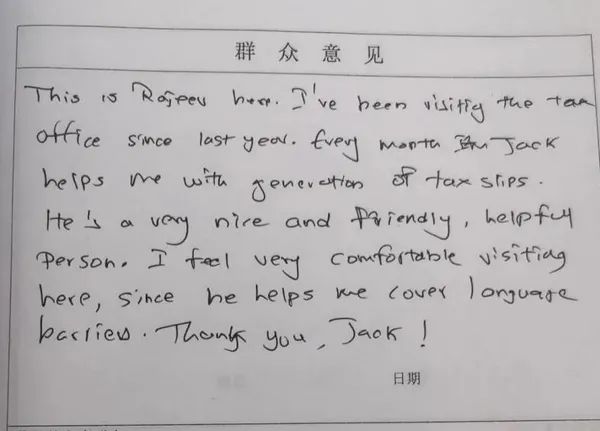 群众意见
This is Rajeev here. I've been visitig the tax
office since last year. Every month Jack
helps me with generation of tax slips.
He's a very nice and friendly, helpful
Person. I feel very comfortable visiting
here, since he helps me cover language
barries. Thank you, Jack!
日期